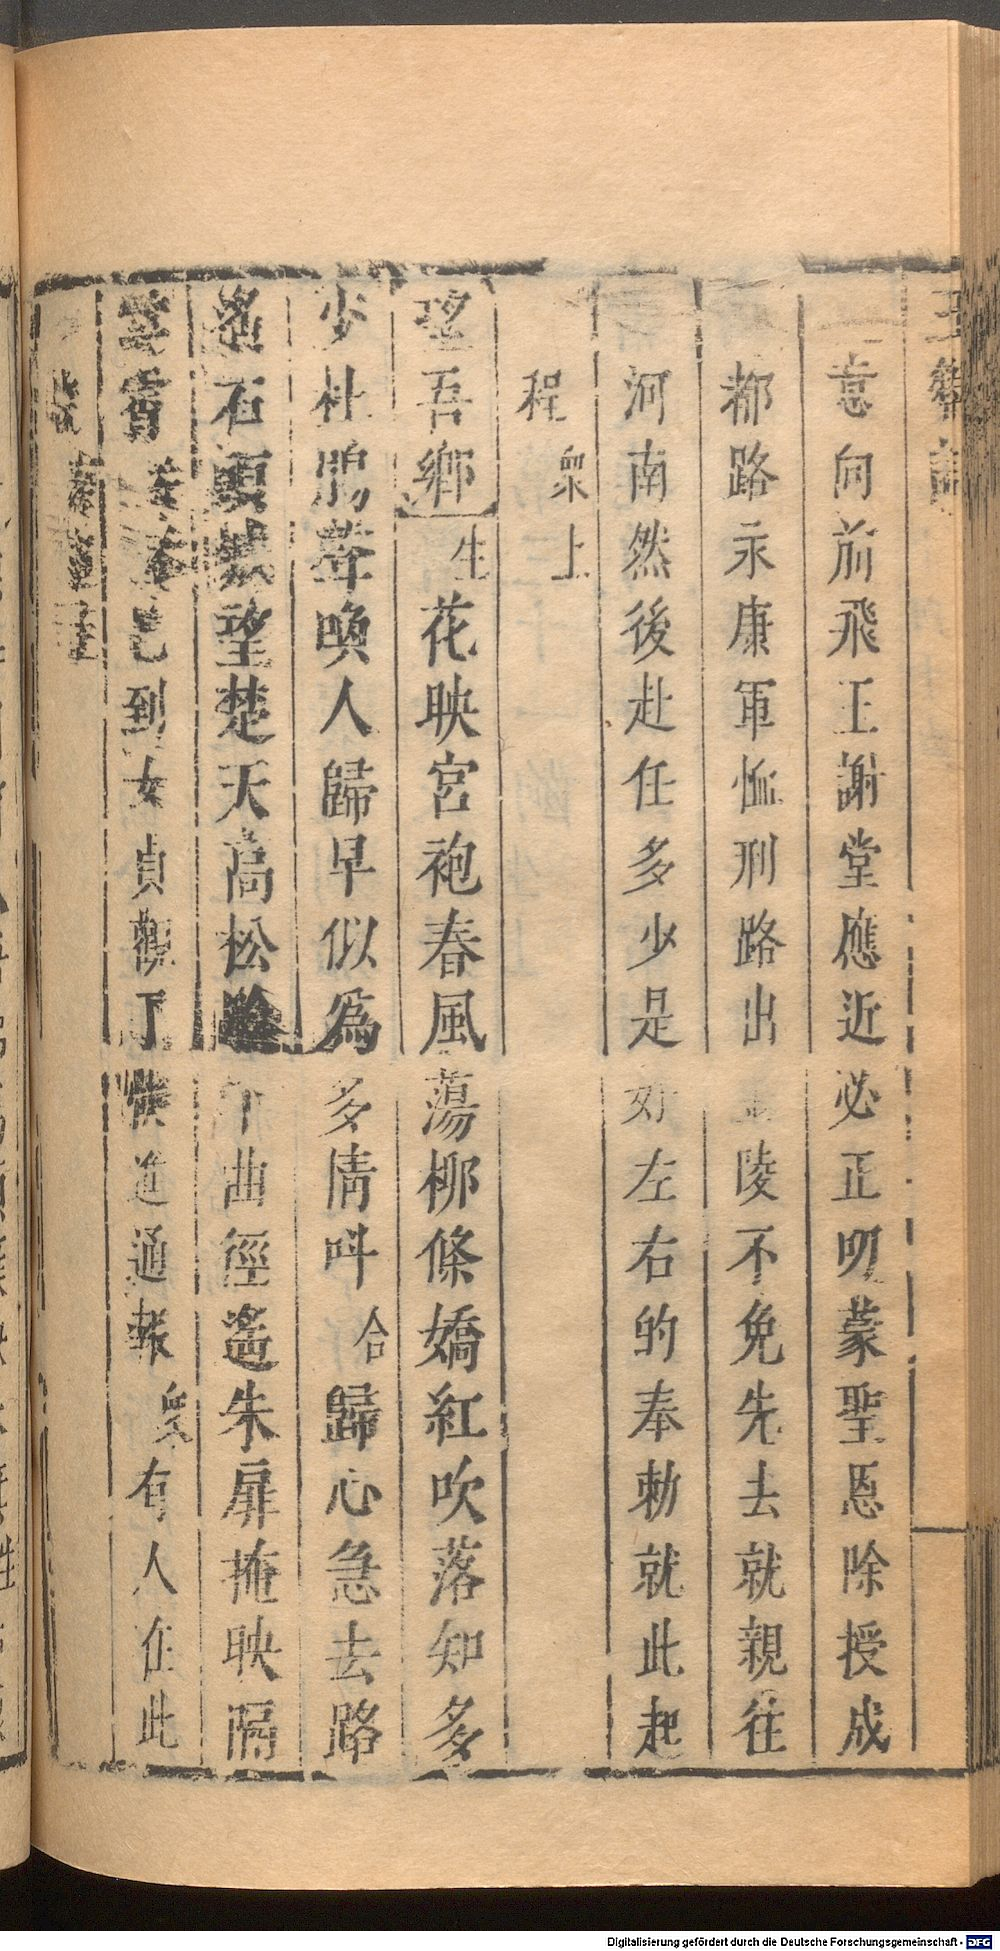 玉簪記
意向前飛王謝堂應近必正叨蒙聖恩除授成
都路永康軍恤刑路出金陵不免先去就親往
河南然後赴任多少是好左右的奉勅就此起
程衆上
望吾鄉生花映宮袍春風蕩柳條嬌紅吹落知多
少杜鵑聲喚人歸早似為多情呌合歸心急去路
遙石頭城望楚天高松陰午曲徑遙朱扉掩映隔
雲霄 已到女貞觀了快進通報衆有人在此
Digitalisierung gefördert durch die Deutsche Forschungsgemeinschaft - DFG